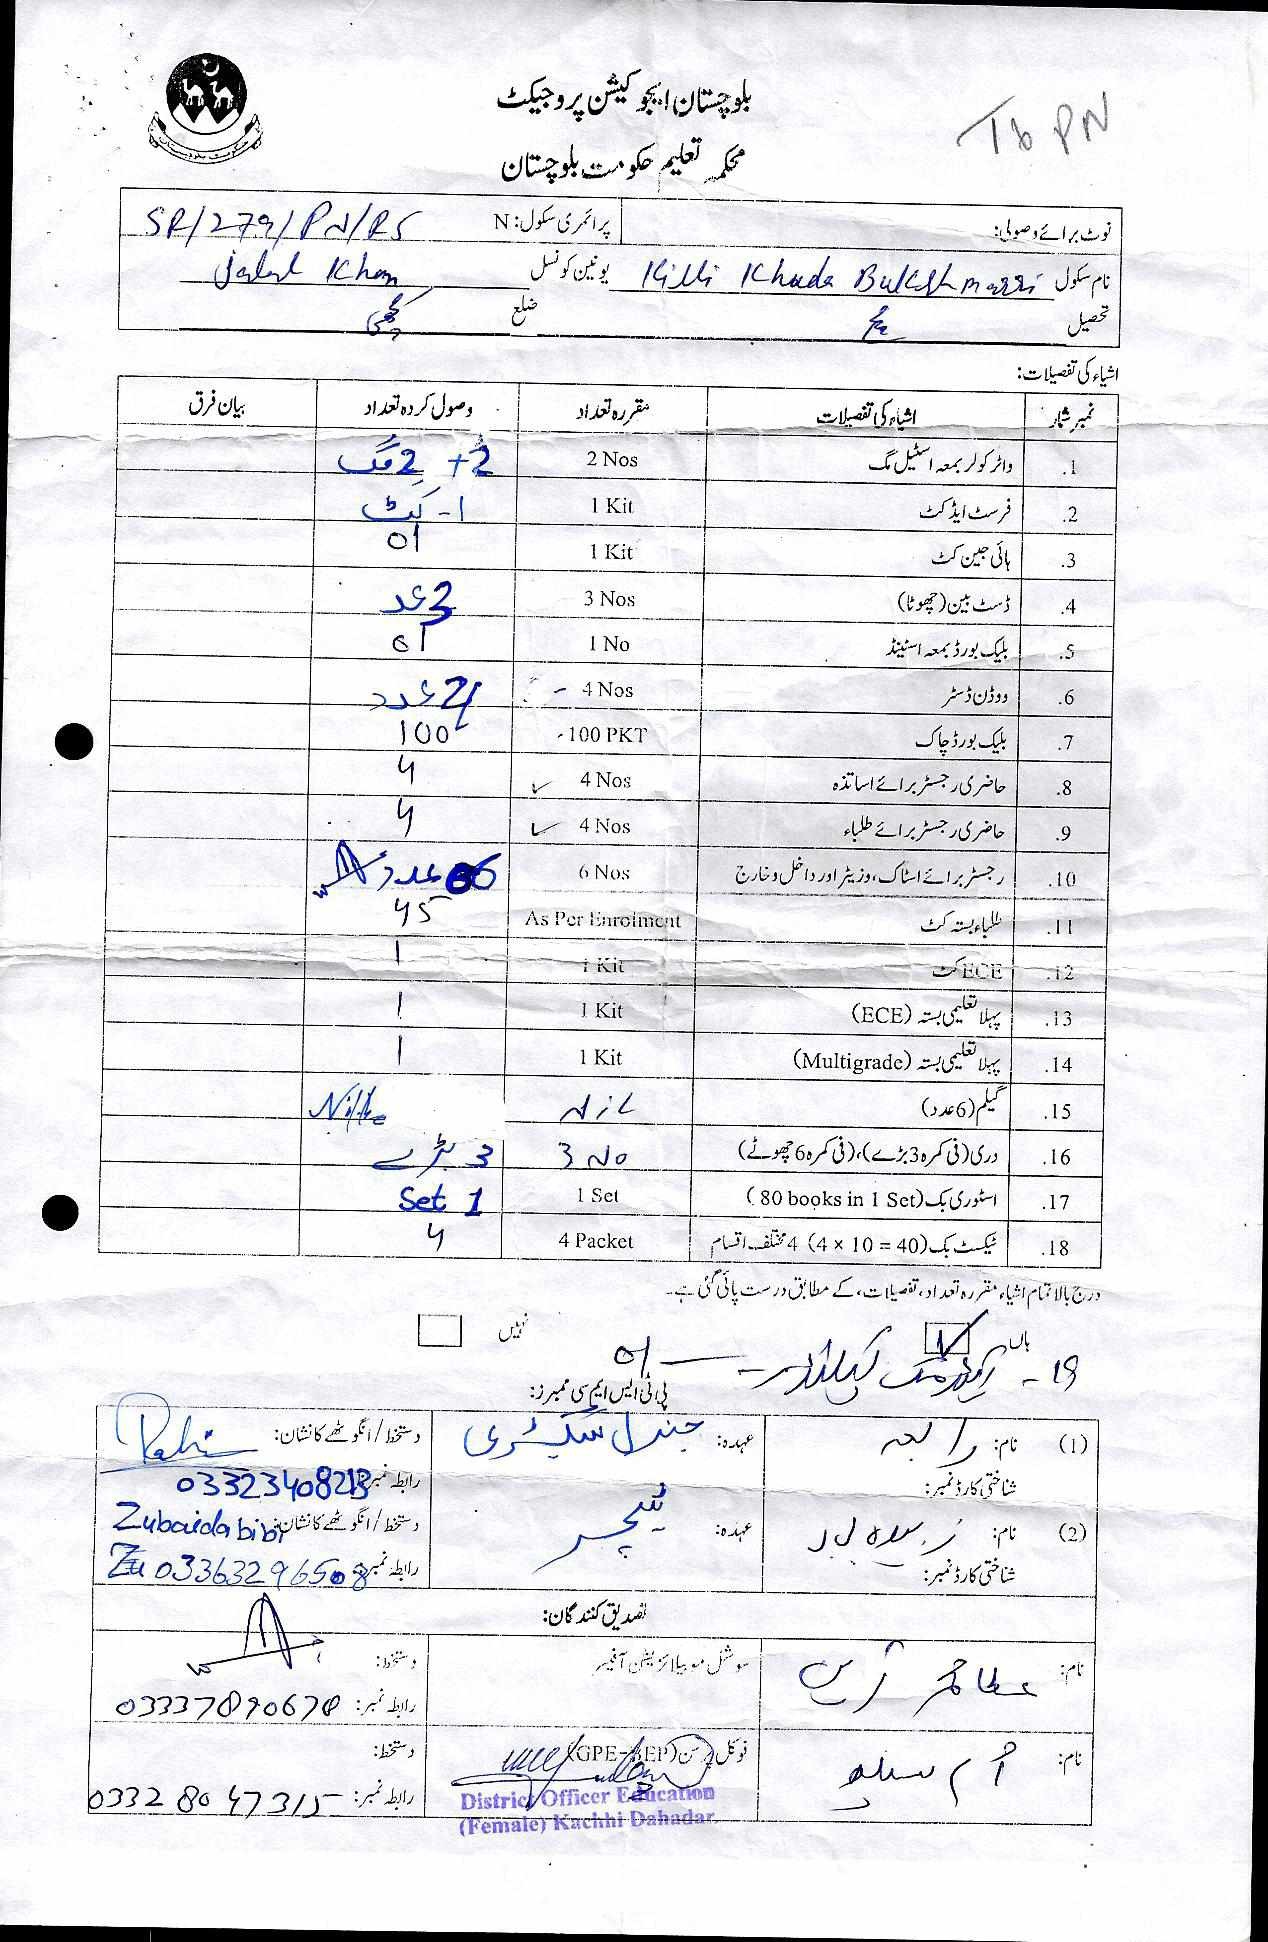 بلوچستان ایجوکیشن پروجیکٹ
محکمہ تعلیم حکومت بلوچستان
Tb PN
نوٹ برائے وصولی: پرائمری سکول: N SR/279/PN/RS
نام سکول Killi Khuda Bukhsh marri یونین کونسل Jalal Khan
تحصیل ضلع کچھی
اشیاء کی تفصیلات:
نمبر شمار اشیاء کی تفصیلات مقررہ تعداد وصول کردہ تعداد بیان فرق
.1 واٹر کولر بمعہ اسٹیل مگ 2 Nos 2 + 2 مگ
.2 فرسٹ ایڈ کٹ 1 Kit 1 - کٹ
.3 ہائی جین کٹ 1 Kit 01
.4 ڈسٹ بین (چھوٹا) 3 Nos 3 عدد
.5 بلیک بورڈ بمعہ اسٹینڈ 1 No 01
.6 ووڈن ڈسٹر 4 Nos عدد
.7 بلیک بورڈ چاک 100 PKT 100
.8 حاضری رجسٹر برائے اساتذہ 4 Nos 4
.9 حاضری رجسٹر برائے طلباء 4 Nos 4
.10 رجسٹر برائے اسٹاک، وزیٹر اور داخل و خارج 6 Nos 06 عدد
.11 طلباء بستہ کٹ As Per Enrolment 45
.12 ECE کٹ 1 Kit 1
.13 پہلا تعلیمی بستہ (ECE) 1 Kit 1
.14 پہلا تعلیمی بستہ (Multigrade) 1 Kit 1
.15 گیلم (6 عدد) Nil Nil
.16 دری (فی کمرہ 3 بڑے)، (فی کمرہ 6 چھوٹے) 3 No 3 بڑے
.17 اسٹوری بک (80 books in 1 Set) 1 Set Set 1
.18 ٹیکسٹ بک (4 × 10 = 40) 4 مختلف اقسام 4 Packet 4
درج بالا تمام اشیاء مقررہ تعداد، تفصیلات، کے مطابق درست پائی گئی ہے۔
ہاں نہیں
19 - کیلنڈر 01
پی ٹی ایس ایم سی ممبرز:
(1) نام: رابعہ عہدہ: جنرل سیکٹری دستخط / انگوٹھے کا نشان:
شناختی کارڈ نمبر: رابطہ نمبر:
(2) نام: زبیدہ بی بی عہدہ: ٹیچر دستخط / انگوٹھے کا نشان: Zubaida bibi
شناختی کارڈ نمبر: رابطہ نمبر: 03363296508
تصدیق کنندگان:
نام: عطا محمد سوشل موبیلائزیشن آفیسر دستخط:
رابطہ نمبر: 03337890678
نام: فوکل پرسن (GPE-BEP) دستخط:
رابطہ نمبر: 03328047315
District Officer Education
(Female) Kachhi Dahadar